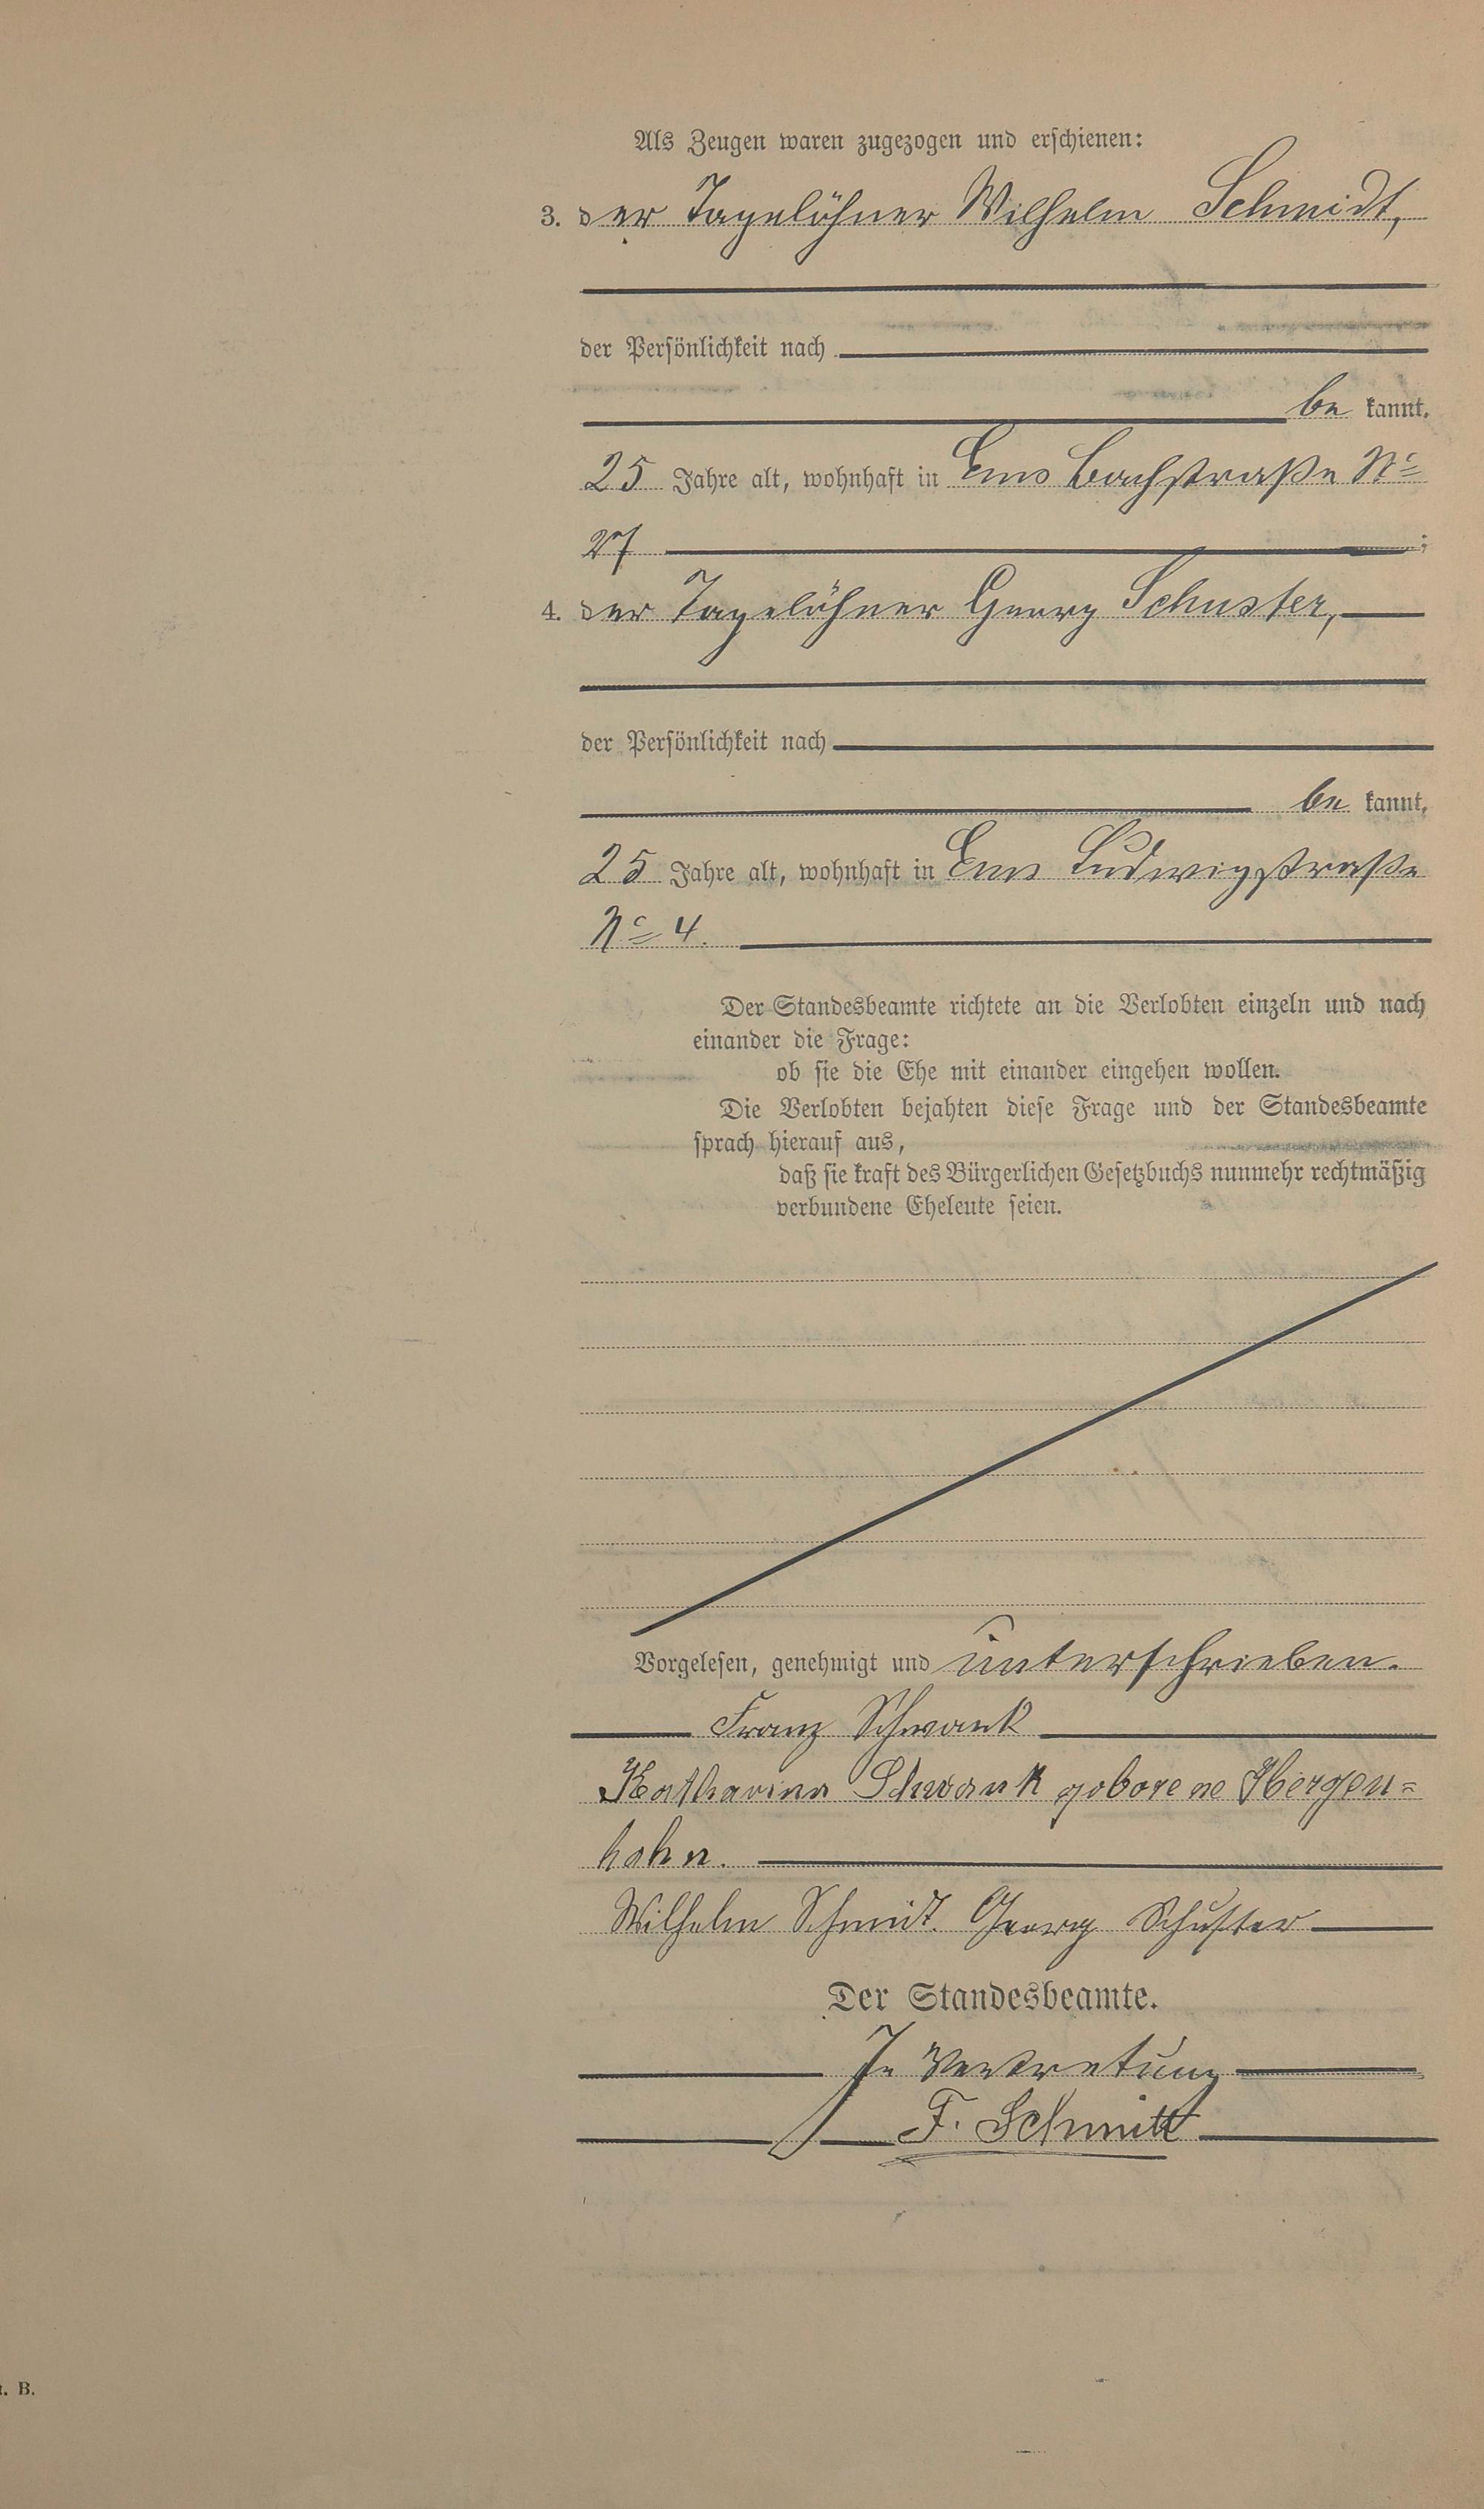 Als Zeugen waren zugezogen und erschienen:
3. der Tagelöhner Wilhelm Schmidt,
der Persönlichkeit nach
be kannt,
25 Jahre alt, wohnhaft in Ems Bachstraße No
27 ;
4. der Tagelöhner Georg Schuster,
der Persönlichkeit nach
be kannt,
25 Jahre alt, wohnhaft in Ems Ludwigstraße
No 4.
Der Standesbeamte richtete an die Verlobten einzeln und nach
einander die Frage:
ob sie die Ehe mit einander eingehen wollen.
Die Verlobten bejahten diese Frage und der Standesbeamte
sprach hierauf aus,
daß sie kraft des Bürgerlichen Gesetzbuchs nunmehr rechtmäßig
verbundene Eheleute seien.
Vorgelesen, genehmigt und unterschrieben.
Franz Schwank
Katharina Schwank geborene Hergen=
hahn.
Wilhelm Schmidt. Georg Schuster
Der Standesbeamte.
In Vertretung
F. Schmitt
. B.